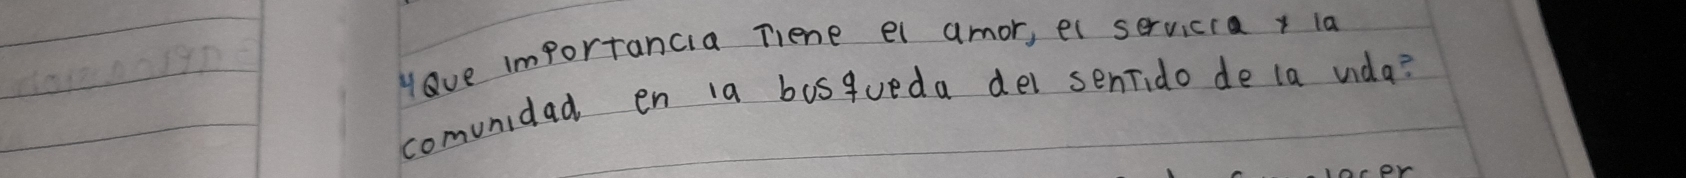 4 Que importancia Tiene el amor, el servicia y la
comunidad en la busqueda del sentido de la vida?